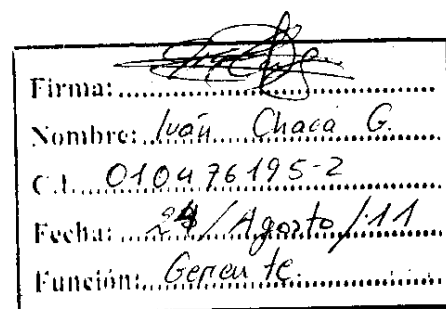 Firma:
Nombre: Iván Chaca G.
C.I. 010476195-2
Fecha: 24/Agosto/11
Función: Gerente.